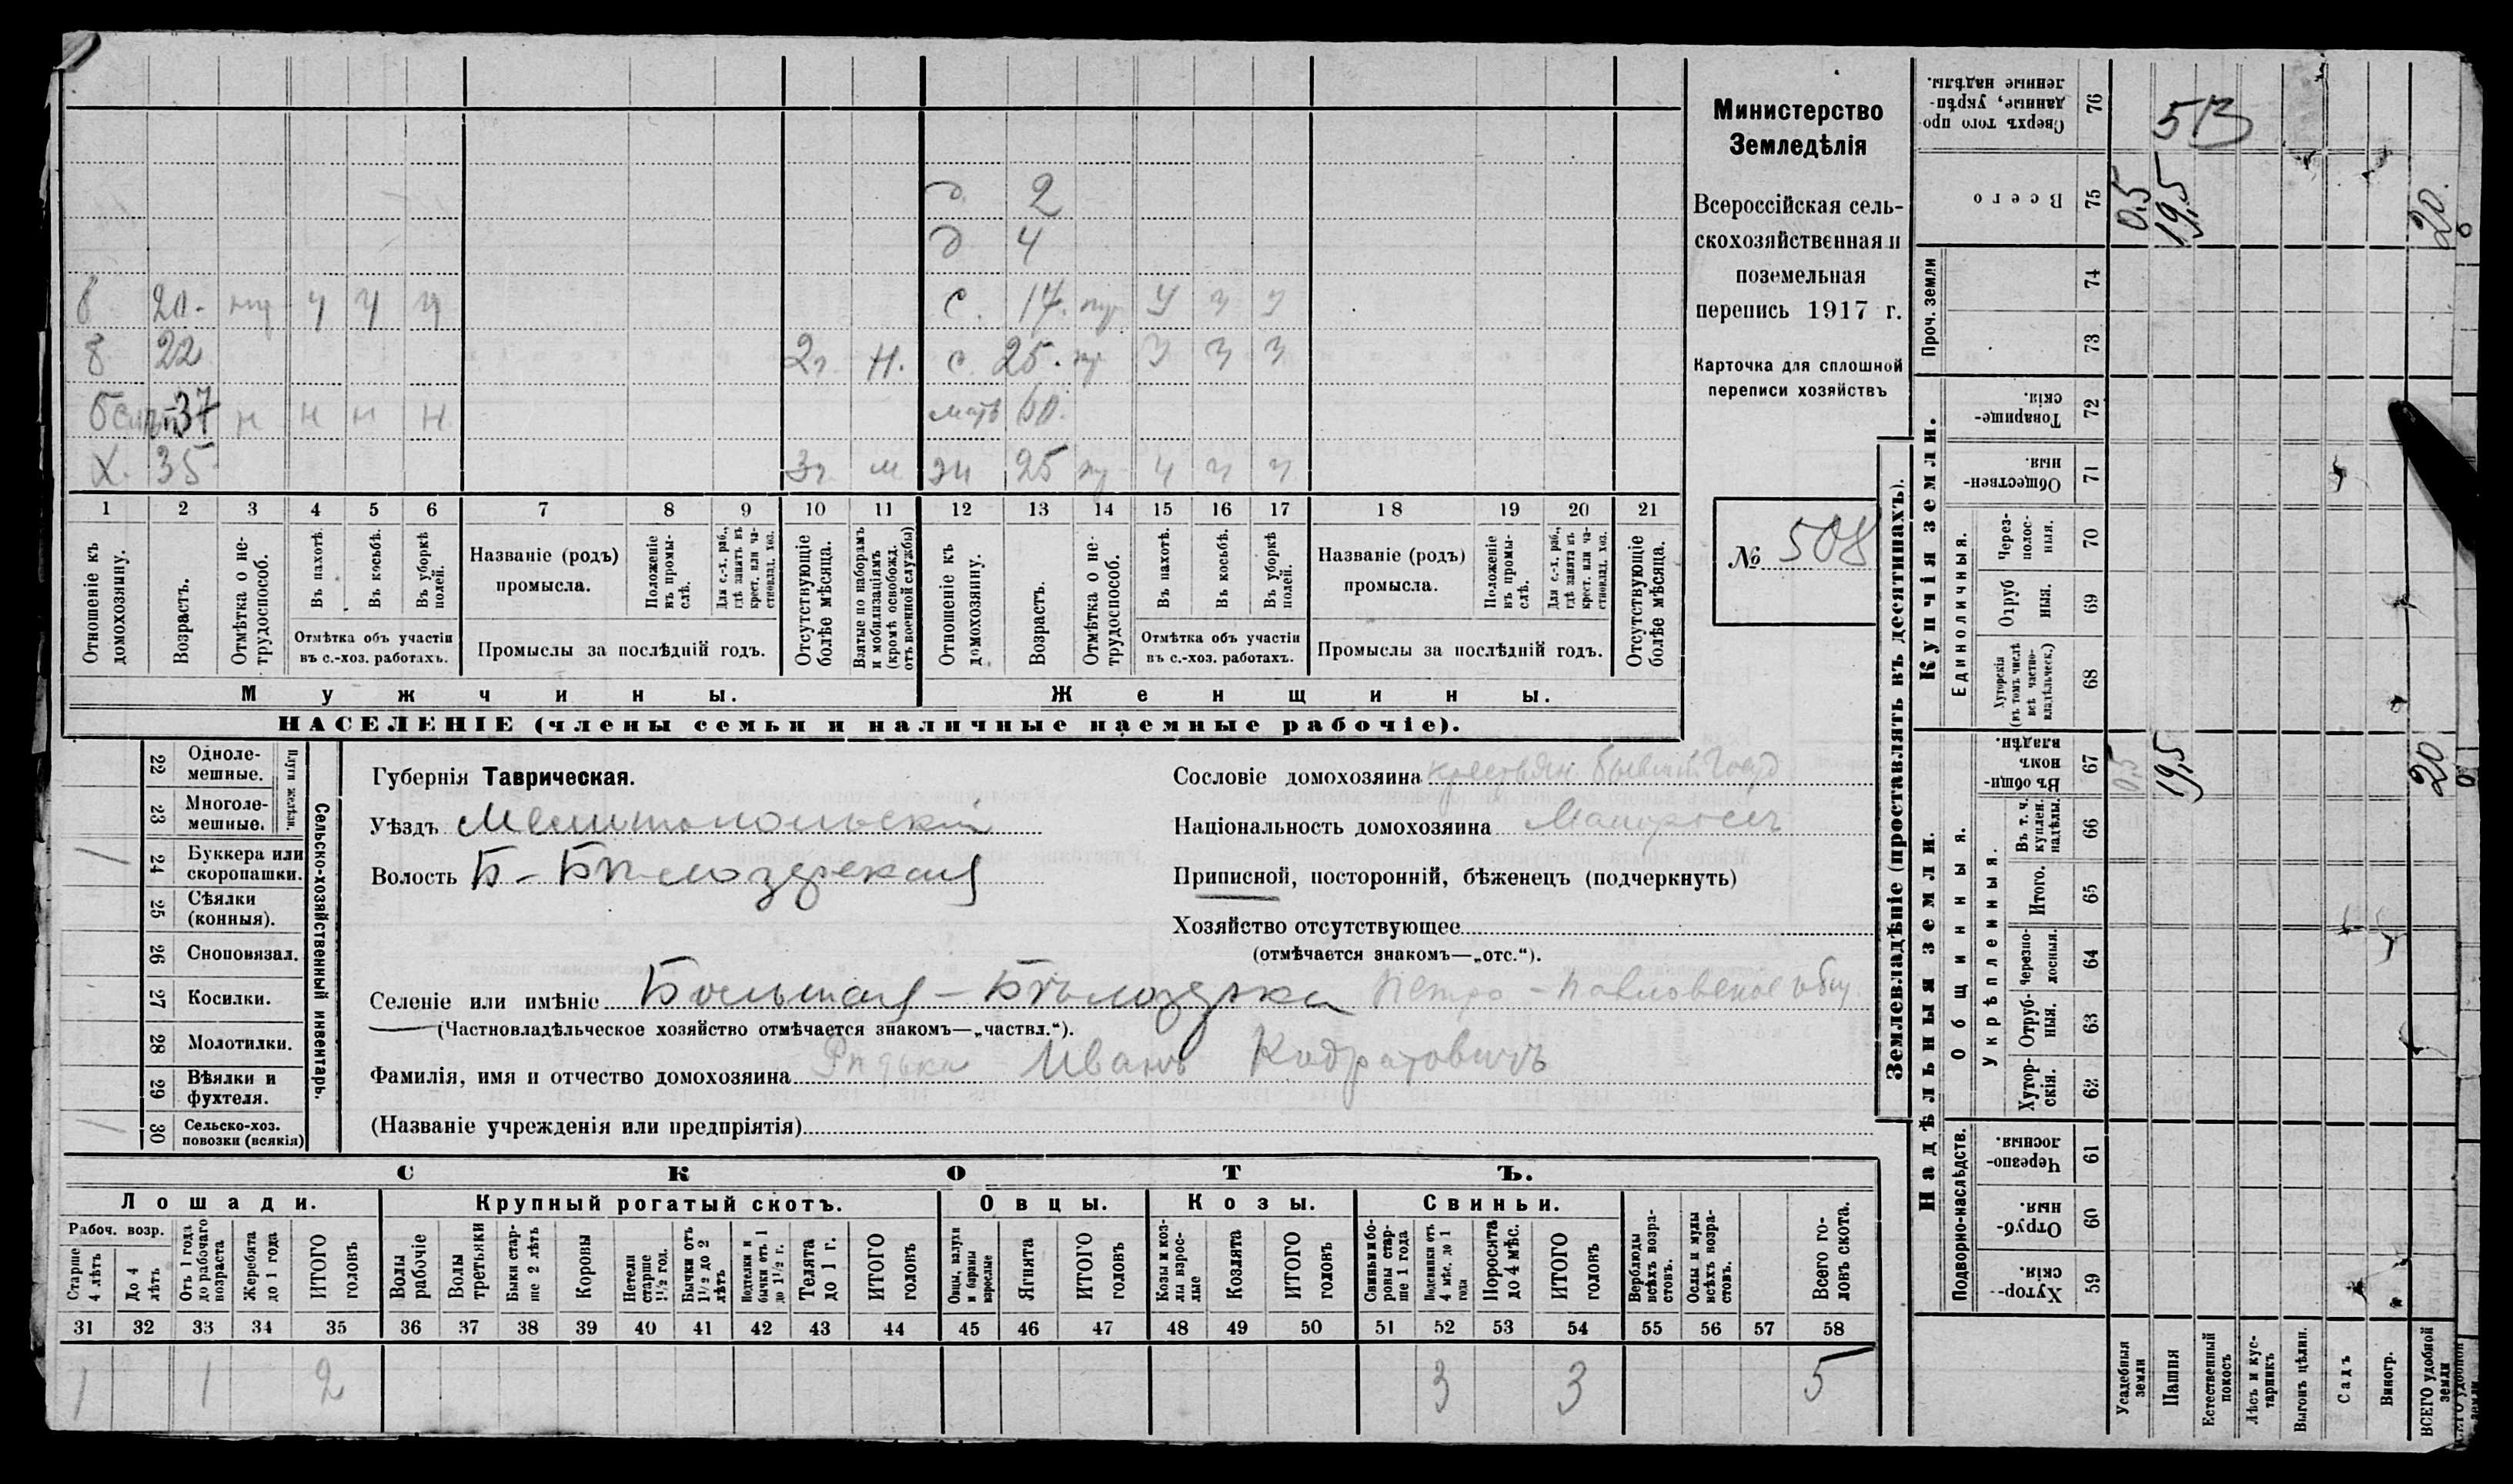 Министерство
Земледѣлія
Всероссійская сель-
скохозяйственная и
поземельная
перепись 1917 г.
Карточка для сплошной
переписи хозяйствъ
№ 508
д. 2
д 4
б 20. 4 4 ч с. 17.
б 22 2г. Н. с. 25. 3 3 3
37 н н н н мать 60.
х. 35 3г м 25 ч ч ч
1 2 3 4 5 6 7 8 9 10 11 12 13 14 15 16 17 18 19 20 21
Отношеніе къ домохозяину.
Возрастъ.
Отмѣтка о не-
трудоспособ.
Въ пахотѣ.
Въ косьбѣ.
Въ уборкѣ полей.
Отмѣтка объ участіи
въ с.-хоз. работахъ.
Названіе (родъ)
промысла.
Положеніе въ промы-
слѣ.
Для с.-х. раб.,
гдѣ занятъ въ
крест. или ча-
стновлад. хоз.
Промыслы за послѣдній годъ.
Отсутствующіе
болѣе мѣсяца.
Взятые по наборамъ
и мобилизаціямъ
(кромѣ освобожд.
отъ военной службы)
Отношеніе къ
домохозяину.
Возрастъ.
Отмѣтка о не-
трудоспособ.
Въ пахотѣ.
Въ косьбѣ.
Въ уборкѣ полей.
Отмѣтка объ участіи
въ с.-хоз. работахъ.
Названіе (родъ)
промысла.
Положеніе въ промы-
слѣ.
Для с.-х. раб.,
гдѣ занята въ
крест. или ча-
стновлад. хоз.
Промыслы за послѣдній годъ.
Отсутствующіе
болѣе мѣсяца.
Мужчины. Женщины.
НАСЕЛЕНІЕ (члены семьи и наличные наемные рабочіе).
Сельско-хозяйственный инвентарь.
Плуги желѣзн.
22 Одноле-
мешные.
23 Многоле-
мешные.
24 Буккера или
скоропашки.
25 Сѣялки
(конныя).
26 Сноповязал.
27 Косилки.
28 Молотилки.
29 Вѣялки и
фухтеля.
30 Сельско-хоз.
повозки (всякія)
Губернія Таврическая.
Уѣздъ Мелитопольскій
Волость Б-Бѣлозерская
Сословіе домохозяина крестьян бывшт Госуд
Національность домохозяина Малоросъ
Приписной, посторонній, бѣженецъ (подчеркнуть)
Хозяйство отсутствующее
(отмѣчается знакомъ—„отс.“).
Селеніе или имѣніе Большая-Бѣлозерка Петро-Павловское общ.
(Частновладѣльческое хозяйство отмѣчается знакомъ—„частвл.“).
Фамилія, имя и отчество домохозяина Рядька Иванъ Кодратовичъ
(Названіе учрежденія или предпріятія)
СКОТЪ.
Лошади. Крупный рогатый скотъ. Овцы. Козы. Свиньи.
Рабоч. возр.
Старше
4 лѣтъ
До 4
лѣтъ
Отъ 1 года
до рабочаго
возраста
Жеребята
до 1 года
ИТОГО
головъ
Волы
рабочіе
Волы
третьяки
Быки стар-
ше 2 лѣтъ
Коровы
Нетели
старше
1½ год.
Бычки отъ
1½ до 2
лѣтъ
Подтелки и
бычки отъ 1
до 1½ г.
Телята
до 1 г.
ИТОГО
головъ
Овцы, валухи
и бараны
взрослые
Ягнята
ИТОГО
головъ
Козы и коз-
лы взрос-
лые
Козлята
ИТОГО
головъ
Свиньи и бо-
ровы стар-
ше 1 года
Подсвинки отъ
4 мѣс. до 1
года
Поросята
до 4 мѣс.
ИТОГО
головъ
Верблюды
всѣхъ возра-
стовъ.
Ослы и мулы
всѣхъ возра-
стовъ.
Всего го-
ловъ скота.
31 32 33 34 35 36 37 38 39 40 41 42 43 44 45 46 47 48 49 50 51 52 53 54 55 56 57 58
1 1 2 3 3 5
Землевладѣніе (проставлять въ десятинахъ).
Надѣльныя земли.
Купчія земли.
Проч. земли
Подворно-наслѣдств.
Общинныя.
Укрѣпленныя.
Единоличныя.
Сверхъ того про-
данные, укрѣп-
ленные надѣлы.
76
5
Всего
75 0,5 19,5 20.
74
73
Товарище-
скія.
72
Обществен-
ныя.
71
Через-
полос-
ныя.
70
Отруб
ныя.
69
Хуторскія
(въ томъ числѣ
всѣ частно-
владѣльческ.)
68
Въ общи-
номъ
владѣн.
67 0,5 19,5 20
Въ т. ч.
куплен.
надѣлы.
66
Итого.
65
Черезпо-
лосныя.
64
Отруб-
ныя.
63
Хутор-
скія.
62
Черезпо-
лосныя.
61
Отруб-
ныя.
60
Хутор-
скія.
59
Усадебныя
земли
Пашня
Естественный
покосъ
Лѣсъ и кус-
тарникъ
Выгонъ цѣлин.
Садъ
Виногр.
ВСЕГО удобной
земли